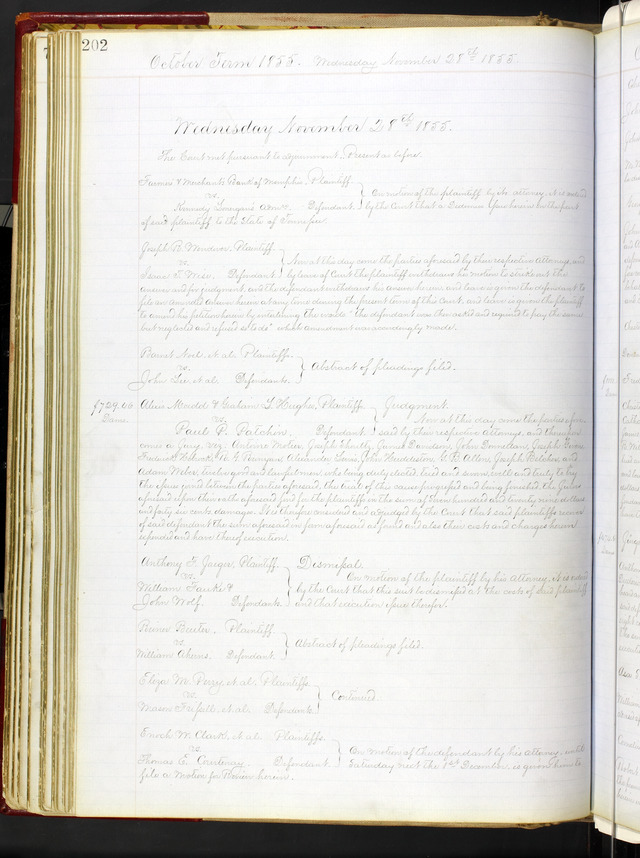 202
October Term 1855. Wednesday November 28th 1855.
Wednesday November 28th 1855.
The Court met pursuant to adjournment. Present as before.
Farmers & Merchants Bank of Memphis, Plaintiff
vs. On motion of the plaintiff by its attorney, it is ordered
Kennedy Defendant by the Court that a Dedimus issue herein on the part
of said plaintiff to the State of Tennessee.
Joseph R. Plaintiff
vs. Now at this day come the parties aforesaid by their respective attorneys, and
Isaac T. Wise. Defendant by leave of Court the plaintiff withdraws his motion to strike out the
answer and for judgment, and the defendant withdraws his answer herein, and leave is given the defendant to
file an amended answer herein at any time during the present term of this Court, and leave is given the plaintiff
to amend his petition herein by the words "the defendant was then asked and required to pay the same
but neglected and refused so to do" which amendment was accordingly made.
Noel et al. Plaintiffs.
vs. Abstract of pleadings filed.
John et al. Defendants.
$729.46 & L Hughes, Plaintiffs Judgment.
Dams. vs. Now at this day come the parties afore-
Paul Defendant said by their respective attorneys, and thereupon
comes a jury, viz, Joseph James John Joseph
Frederick Alexander John Huddleston, Joseph and
Adam twelve good and lawful men, who being duly elected, tried and sworn, well and truly to try
the issue joined between the parties aforesaid, the trial of this cause progressed and being finished, the Jurors
aforesaid upon their oath aforesaid find for the plaintiffs in the sum of Seven hundred and twenty nine dollars
and forty six cents damages. It is therefore considered and adjudged by the Court that said plaintiffs recover
of said defendant the sum aforesaid in form aforesaid as found and also their costs and charges herein
expended and have thereof execution.
Anthony F. Jaeger, Plaintiff Dismissal.
vs. On motion of the plaintiff by his attorney, it is ordered
William & by the Court that this suit be dismissed at the costs of said plaintiff
John Wolf. Defendants and that execution issue therefor.
Plaintiff
vs. Abstract of pleadings filed.
William Ahrens. Defendant
Eliza M. et al. Plaintiffs
vs. Continued
Mason et al. Defendants
Enoch W. Clark, et al. Plaintiffs
vs. On motion of the defendant by his attorney, until
Thomas C. Defendant Saturday next the 1st December is given him to
file a motion for herein.